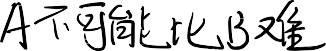 A不可能比B难